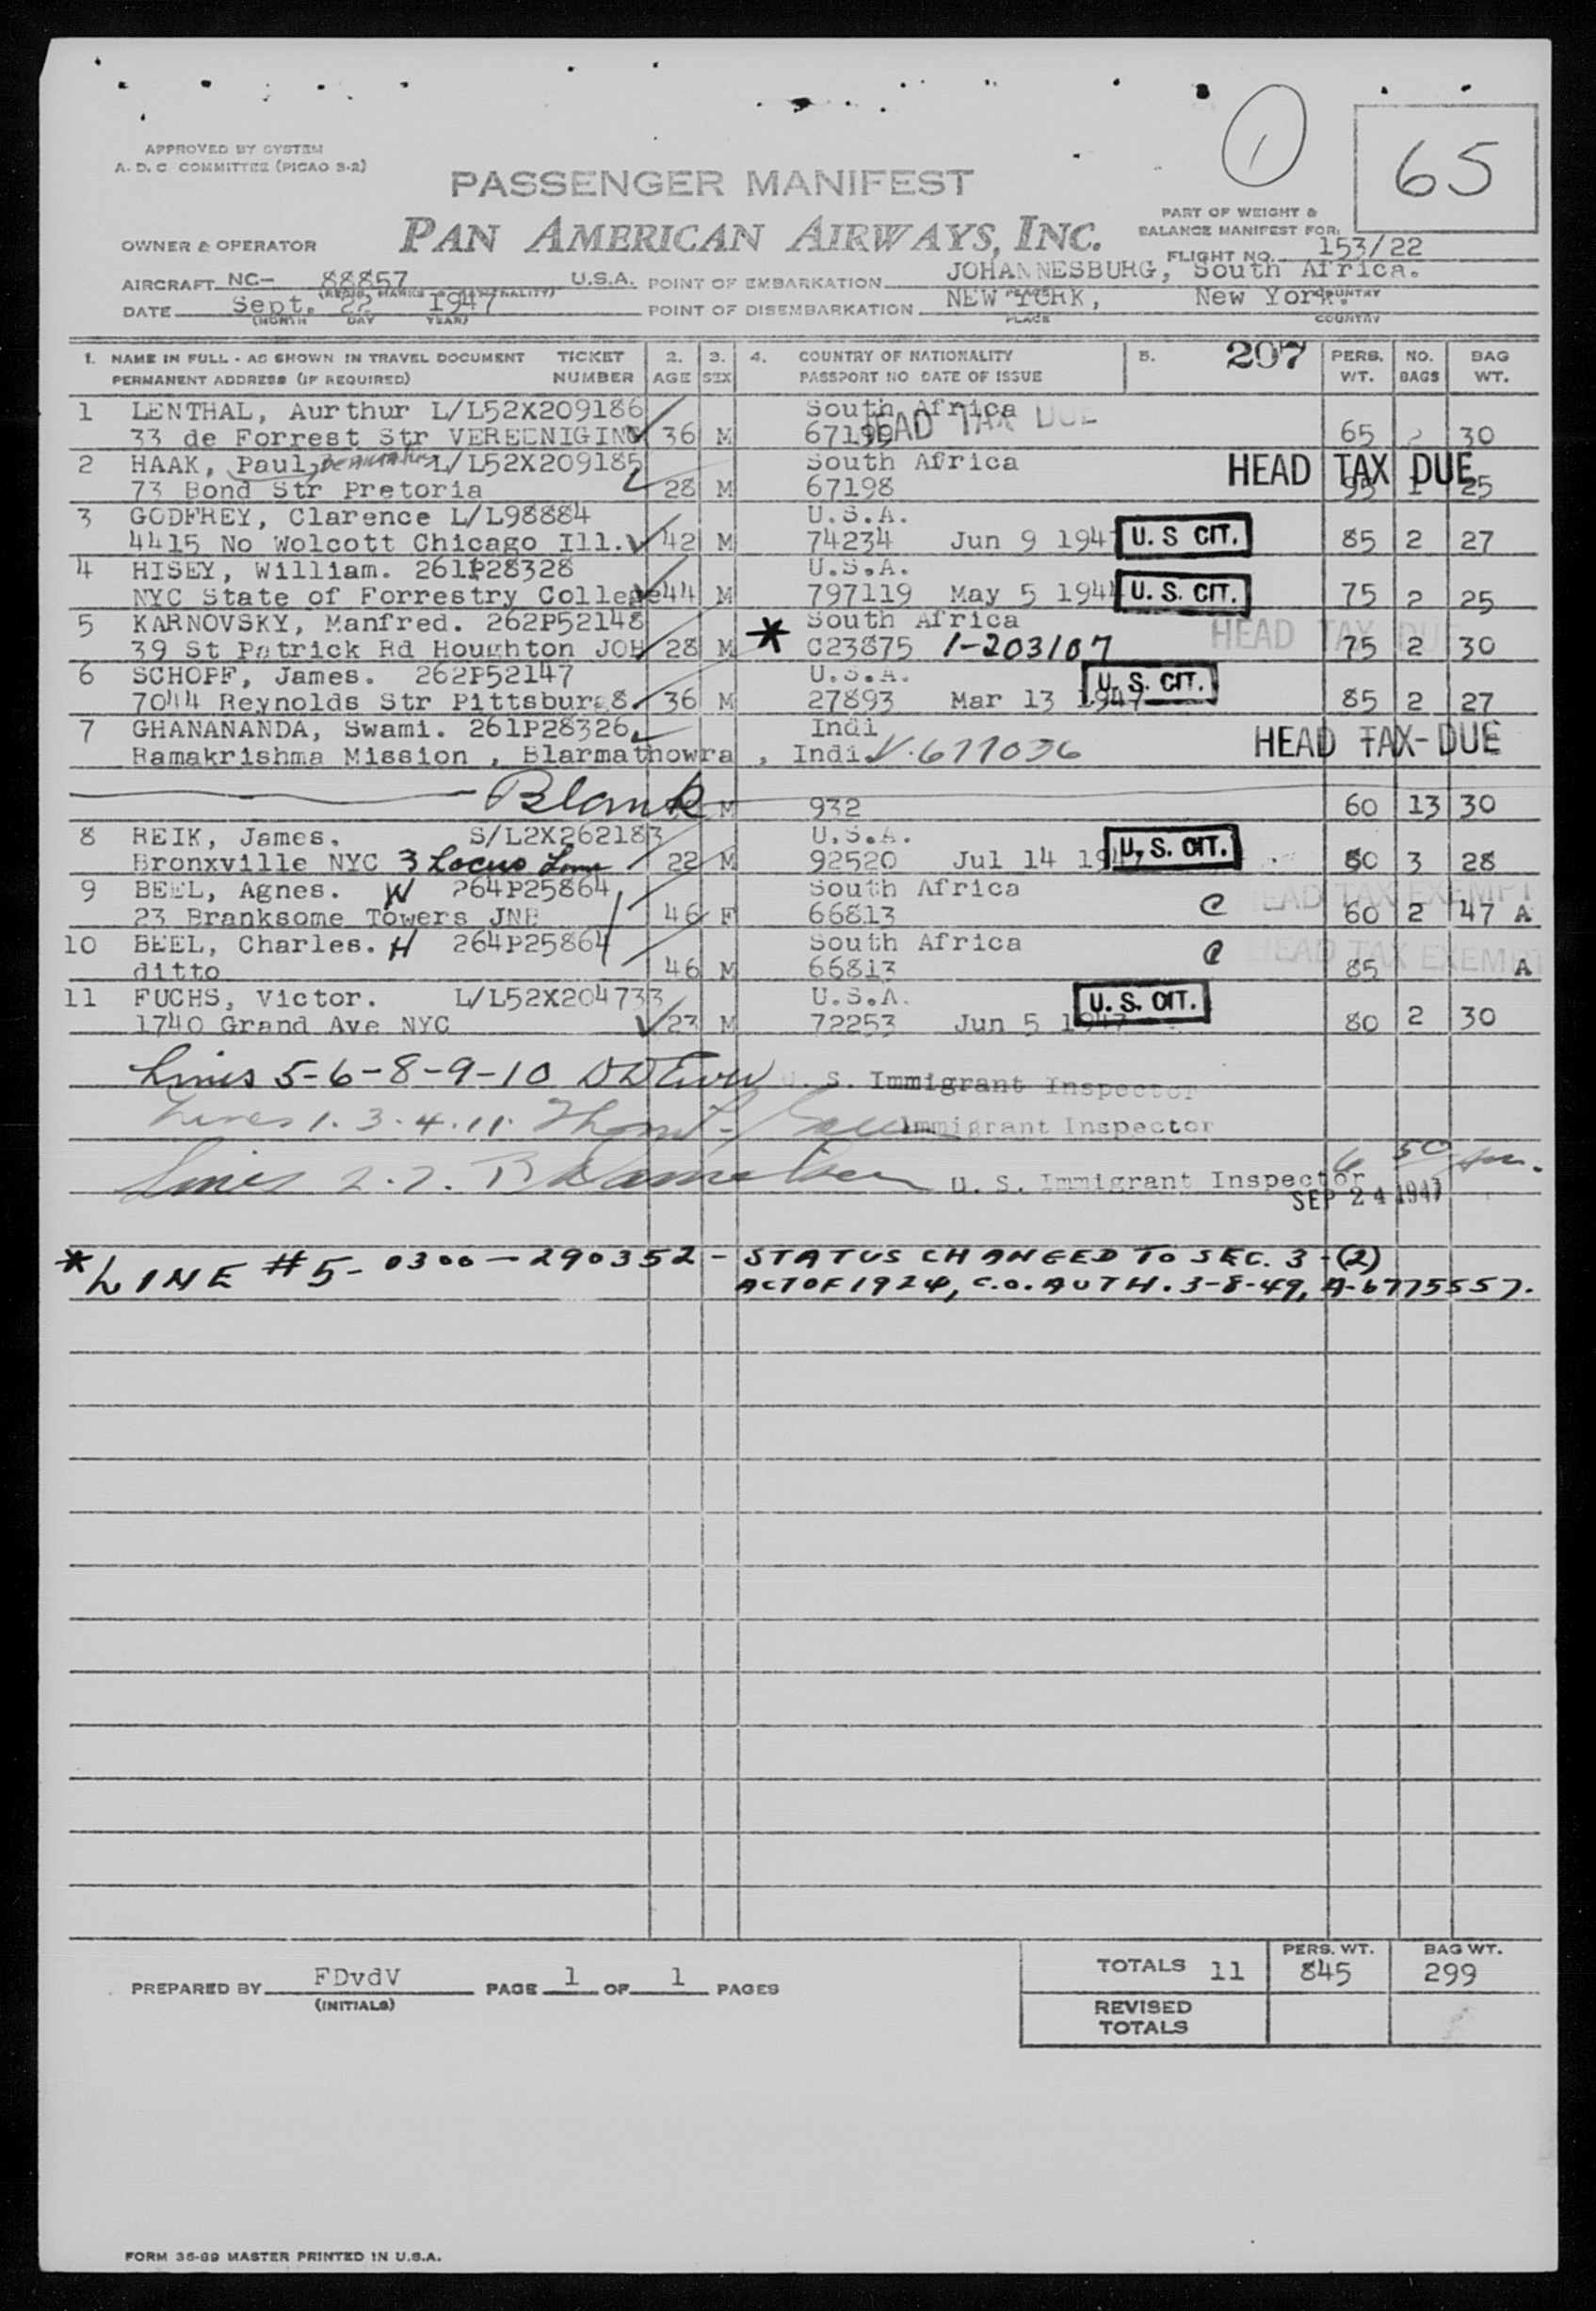 1
65
APPROVED BY SYSTEM
A. D. C COMMITTEE (PICAO S-2)
PASSENGER MANIFEST
PAN AMERICAN AIRWAYS, INC.
PART OF WEIGHT &
BALANCE MANIFEST FOR:
OWNER & OPERATOR
FLIGHT NO. 153/22
AIRCRAFT NC- 88857 U.S.A. POINT OF EMBARKATION JOHANNESBURG, South Africa.
DATE Sept. 22 1947 POINT OF DISEMBARKATION NEW YORK, New York.
(MONTH DAY YEAR) PLACE COUNTRY
1. NAME IN FULL - AS SHOWN IN TRAVEL DOCUMENT TICKET 2. 3. 4. COUNTRY OF NATIONALITY 5. 207 PERS. NO. BAG
PERMANENT ADDRESS (IF REQUIRED) NUMBER AGE SEX PASSPORT NO DATE OF ISSUE WT. BAGS WT.
1 LENTHAL, Aurthur L/L52X209186 South Africa HEAD TAX DUE
33 de Forrest Str VEREENIGING 36 M 67199 65 2 30
2 HAAK, Paul, L/L52X209185 South Africa HEAD TAX DUE
73 Bond Str Pretoria 28 M 67198 95 1 25
3 GODFREY, Clarence L/L98884 U.S.A.
4415 No Wolcott Chicago Ill. 42 M 74234 Jun 9 194 U. S CIT. 85 2 27
4 HISEY, William. 261P28328 U.S.A.
NYC State of Forrestry College 44 M 797119 May 5 194 U. S. CIT. 75 2 25
5 KARNOVSKY, Manfred. 262P52148 South Africa HEAD TAX DUE
39 St Patrick Rd Houghton JOH 28 M * C23875 1-203107 75 2 30
6 SCHOPF, James. 262P52147 U.S.A. U. S. CIT.
7044 Reynolds Str Pittsburg 8. 36 M 27893 Mar 13 1947 85 2 27
7 GHANANANDA, Swami. 261P28326 Indi HEAD TAX-DUE
Ramakrishma Mission , Blarmathowra , Indi V-677036
Blank M 932 60 13 30
8 REIK, James. S/L2X262183 U.S.A. U. S. CIT.
Bronxville NYC 3 Locus 22 M 92520 Jul 14 194 80 3 28
9 BEEL, Agnes. W 264P25864 South Africa C HEAD TAX EXEMPT
23 Branksome Towers JNB 46 F 66813 60 2 47 A
10 BEEL, Charles. H 264P25864 South Africa C HEAD TAX EXEMPT
ditto 46 M 66813 85 A
11 FUCHS, Victor. L/L52X204733 U.S.A. U. S. CIT.
1740 Grand Ave NYC 23 M 72253 Jun 5 1947 80 2 30
Lines 5-6-8-9-10 U. S. Immigrant Inspector
Lines 1. 3. 4. 11. Immigrant Inspector
Lines 2. 7. U. S. Immigrant Inspector
SEP 24 1947
* LINE #5- 0300-290352 - STATUS CHANGED TO SEC. 3-(2)
ACT OF 1924, C.O. AUTH. 3-8-49, A-6775557.
TOTALS 11 PERS. WT. 845 BAG WT. 299
PREPARED BY FDvdV PAGE 1 OF 1 PAGES
(INITIALS)
REVISED
TOTALS
FORM 36-89 MASTER PRINTED IN U.S.A.